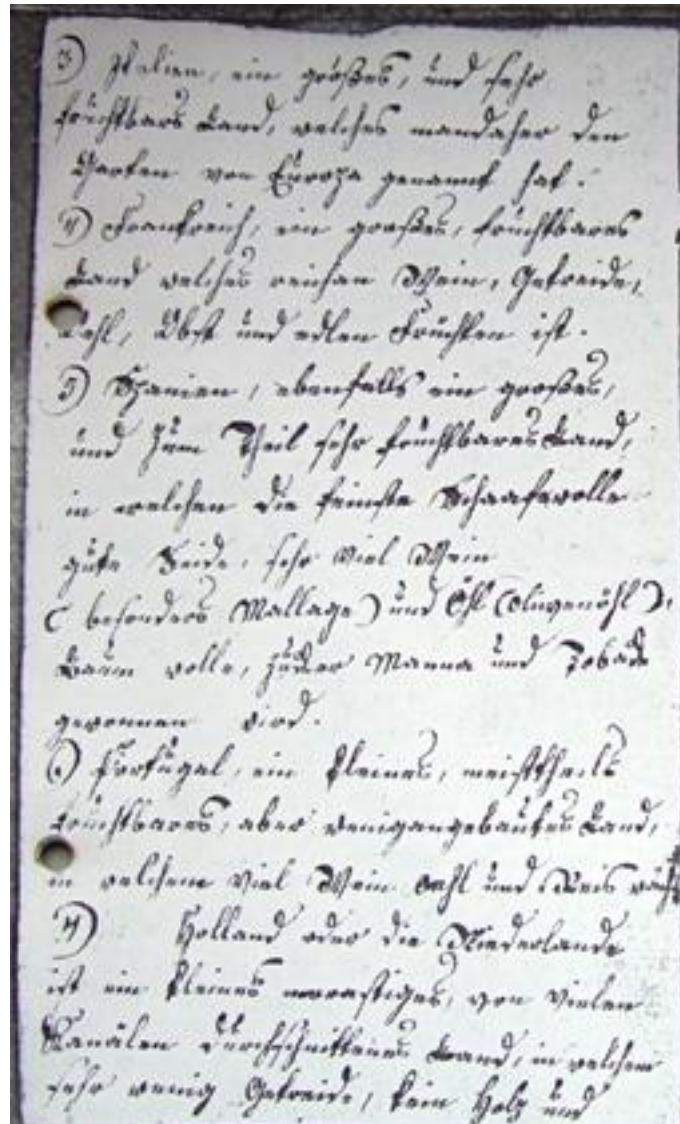 3) Italien, ein großes, und sehr
fruchtbars Land, welches mandaher den
Garten von Europa genannt hat.
4) Frankreich, ein großes, fruchtbares
Land welches reichan Wein, Getreide,
Oehl, Obst und edlen Früchten ist.
5) Spanien, ebenfalls ein großes,
und zum Theil sehr fruchtbares Land,
in welchen die feinste Schaafwolle
gute Seide, sehr viel Wein
(besonders Mallage) und Öhl (Olivenöhl),
Baum wolle, Zucker Manna und Toback
gewonnen wird.
Portugal, ein kleines, meisttheils
fruchtbares, aber wenigangebautes Land,
in welchem viel Wein Oehl und Reis wäch
Holland oder die Niederlande
ist ein kleines morastiges, von vielen
Kanälen durchschnittenes Land, in welchem
sehr wenig Getreide, kein Holz und